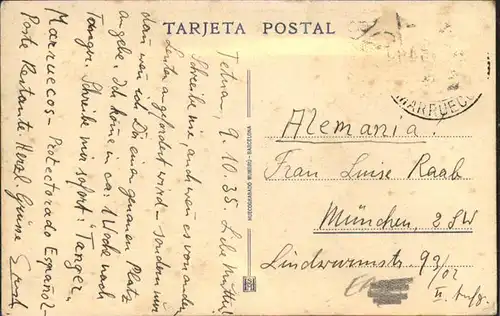 TARJETA POSTAL
Tetuan, 9.10.35. Liebe Mutter!
Schreibe mir, auch wen es von andern
Leuten angefordert wird – sondern nur
dan wen ich Dir einen genauen Platz
angebe. Ich kome in ca. 1 Woche nach
Tanger. Schreibe mir sofort: "Tanger,
Marruecos - Protectorado Español
Poste Restante. Herzl. Grüsse
MARRUECOS
Alemania.
Frau Luise Raab
München, 2 SW
Lindwurmstr. 93/02
II.